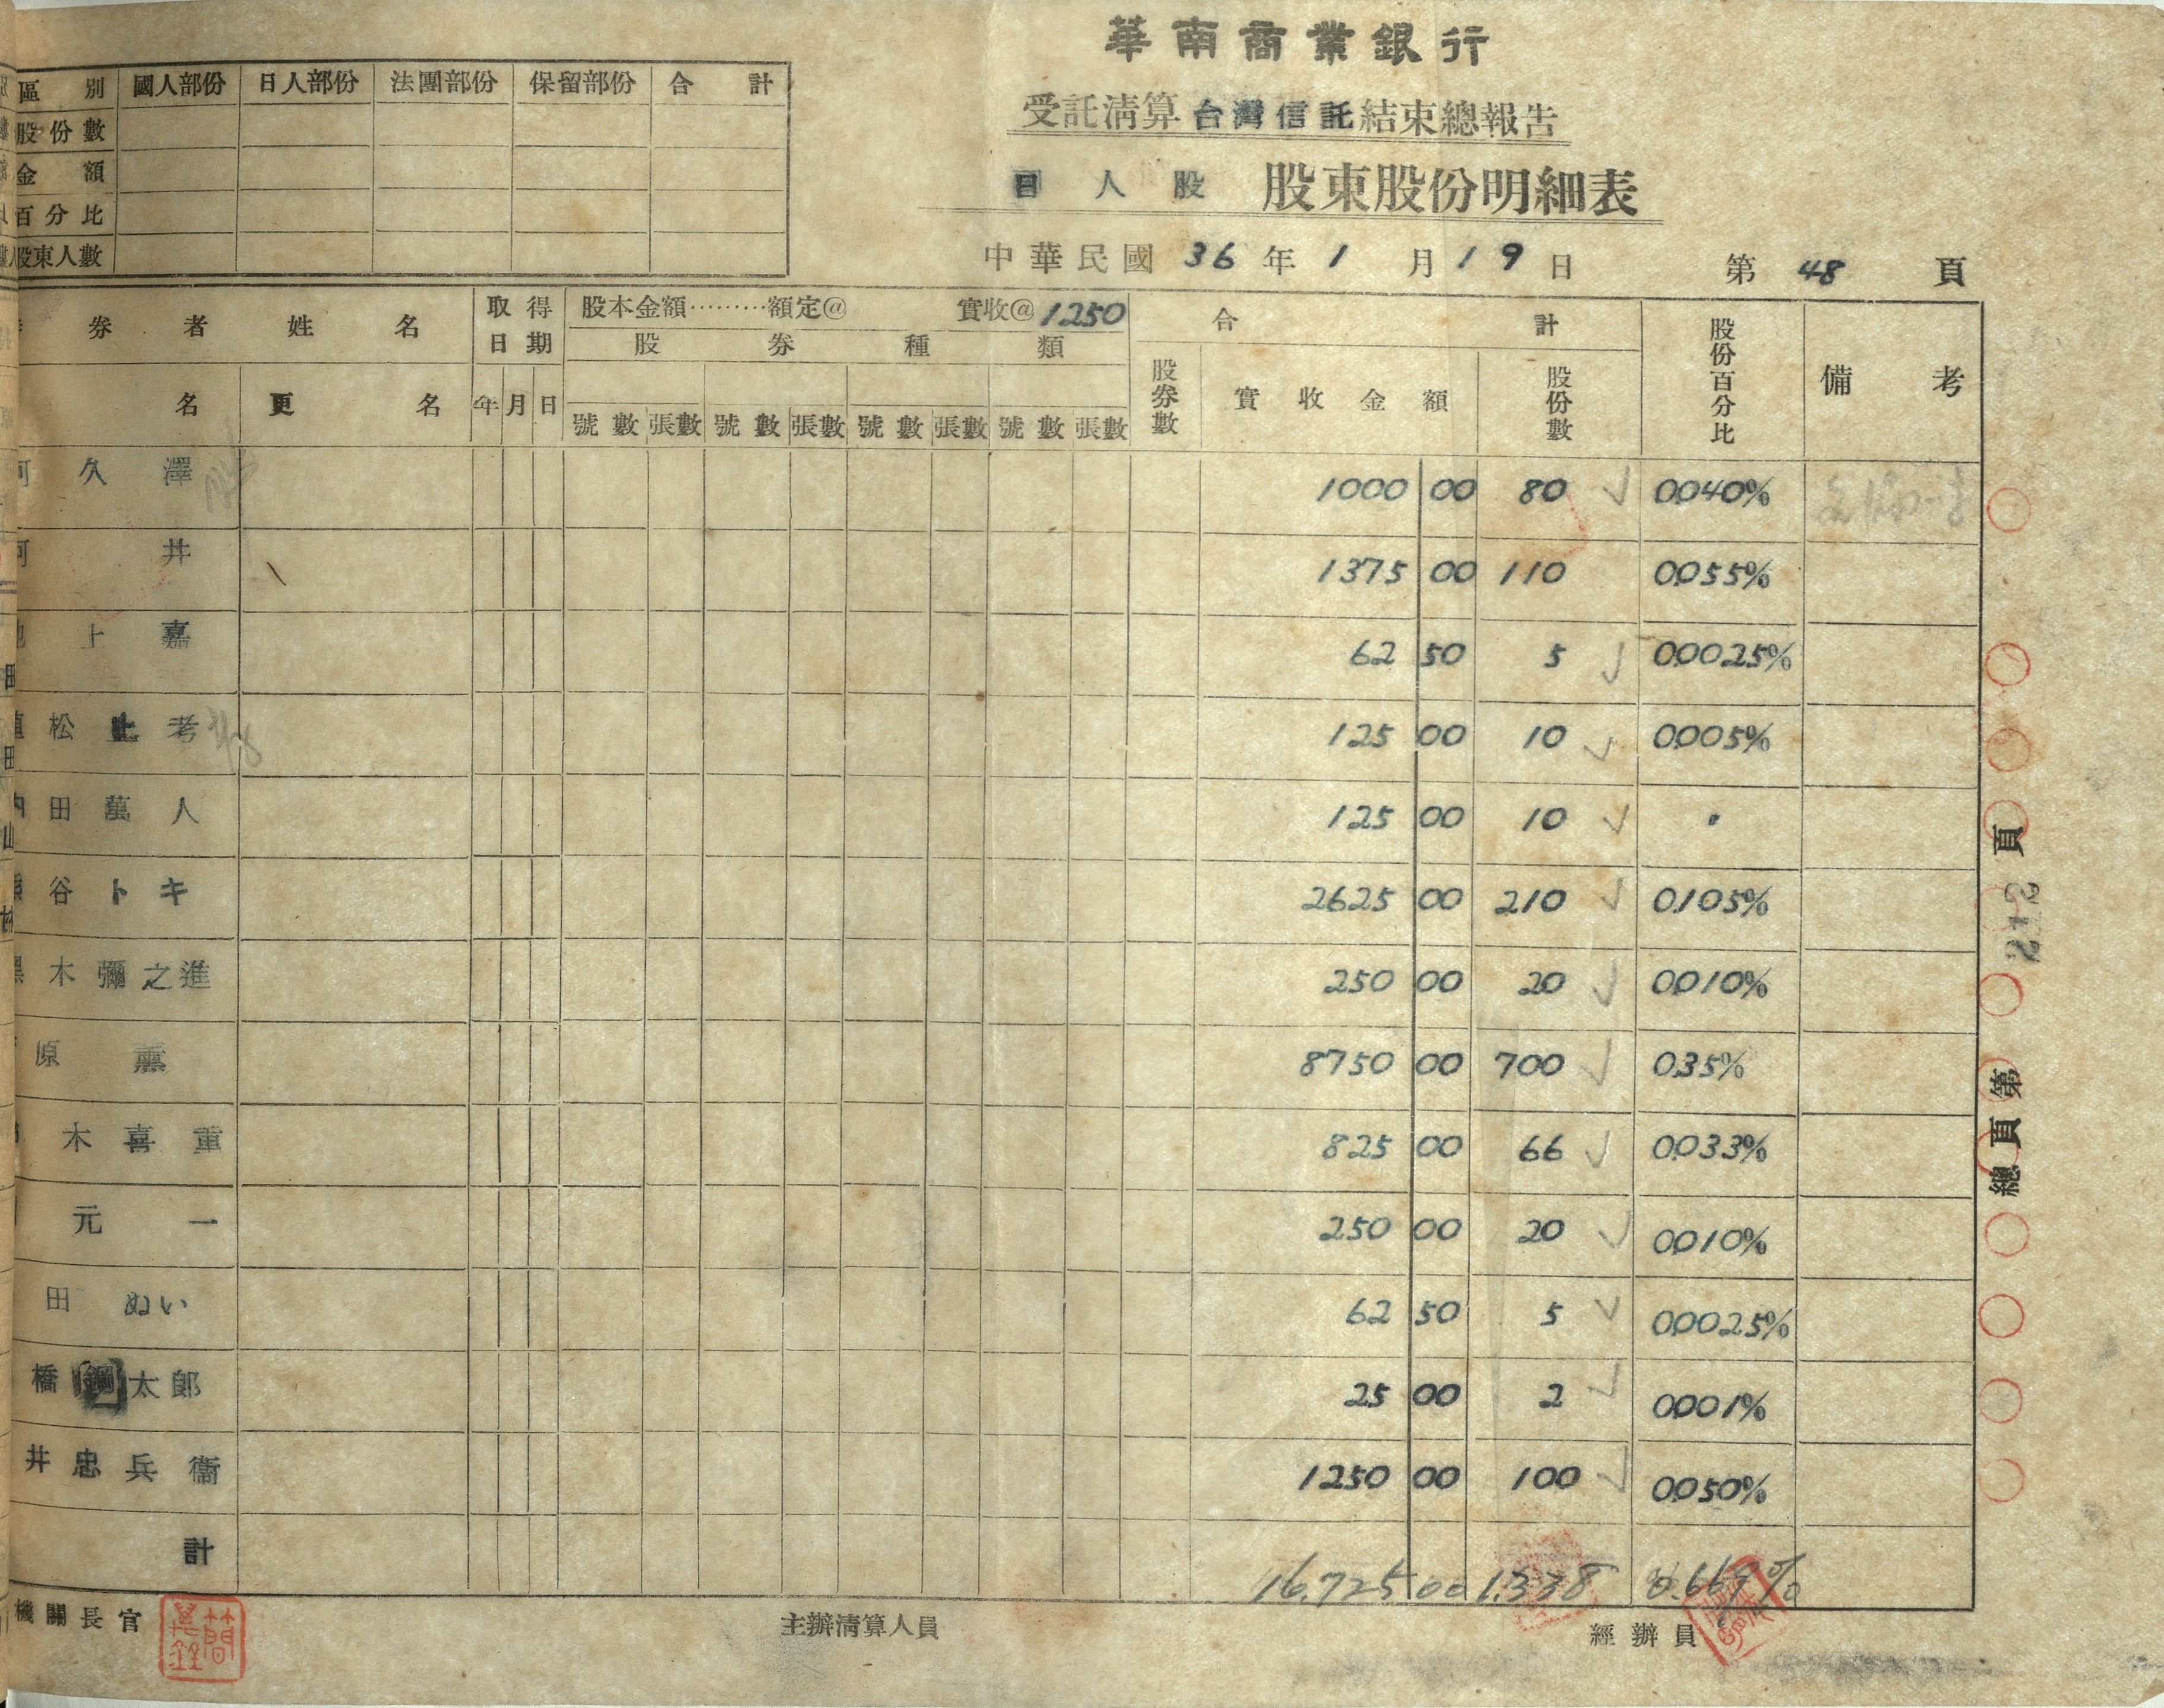 華南商業銀行
受託清算台灣信託結束總報告
日人股 股東股份明細表
中華民國 36 年 1 月 19 日 第 48 頁
區別 國人部份 日人部份 法團部份 保留部份 合計
股份數
金額
百分比
股東人數
券者姓名 取得日期 股本金額………額定@ 實收@ 1250 合計 股份百分比 備考
股券種類
名 更名 年 月 日 號數 張數 號數 張數 號數 張數 號數 張數 股券數 實收金額 股份數
久澤 1000 00 80 0040%
井 1375 00 110 0055%
上嘉 62 50 5 00025%
松止考 125 00 10 0005%
田萬人 125 00 10 〃
谷トキ 2625 00 210 0105%
木彌之進 250 00 20 0010%
原薰 8750 00 700 035%
木喜重 825 00 66 0033%
元一 250 00 20 0010%
田ぬい 62 50 5 00025%
橋鋼太郎 25 00 2 0001%
井忠兵衞 1250 00 100 0050%
計 16,725 00 1,338 0.669%
機關長官 主辦清算人員 經辦員
總頁第 212 頁